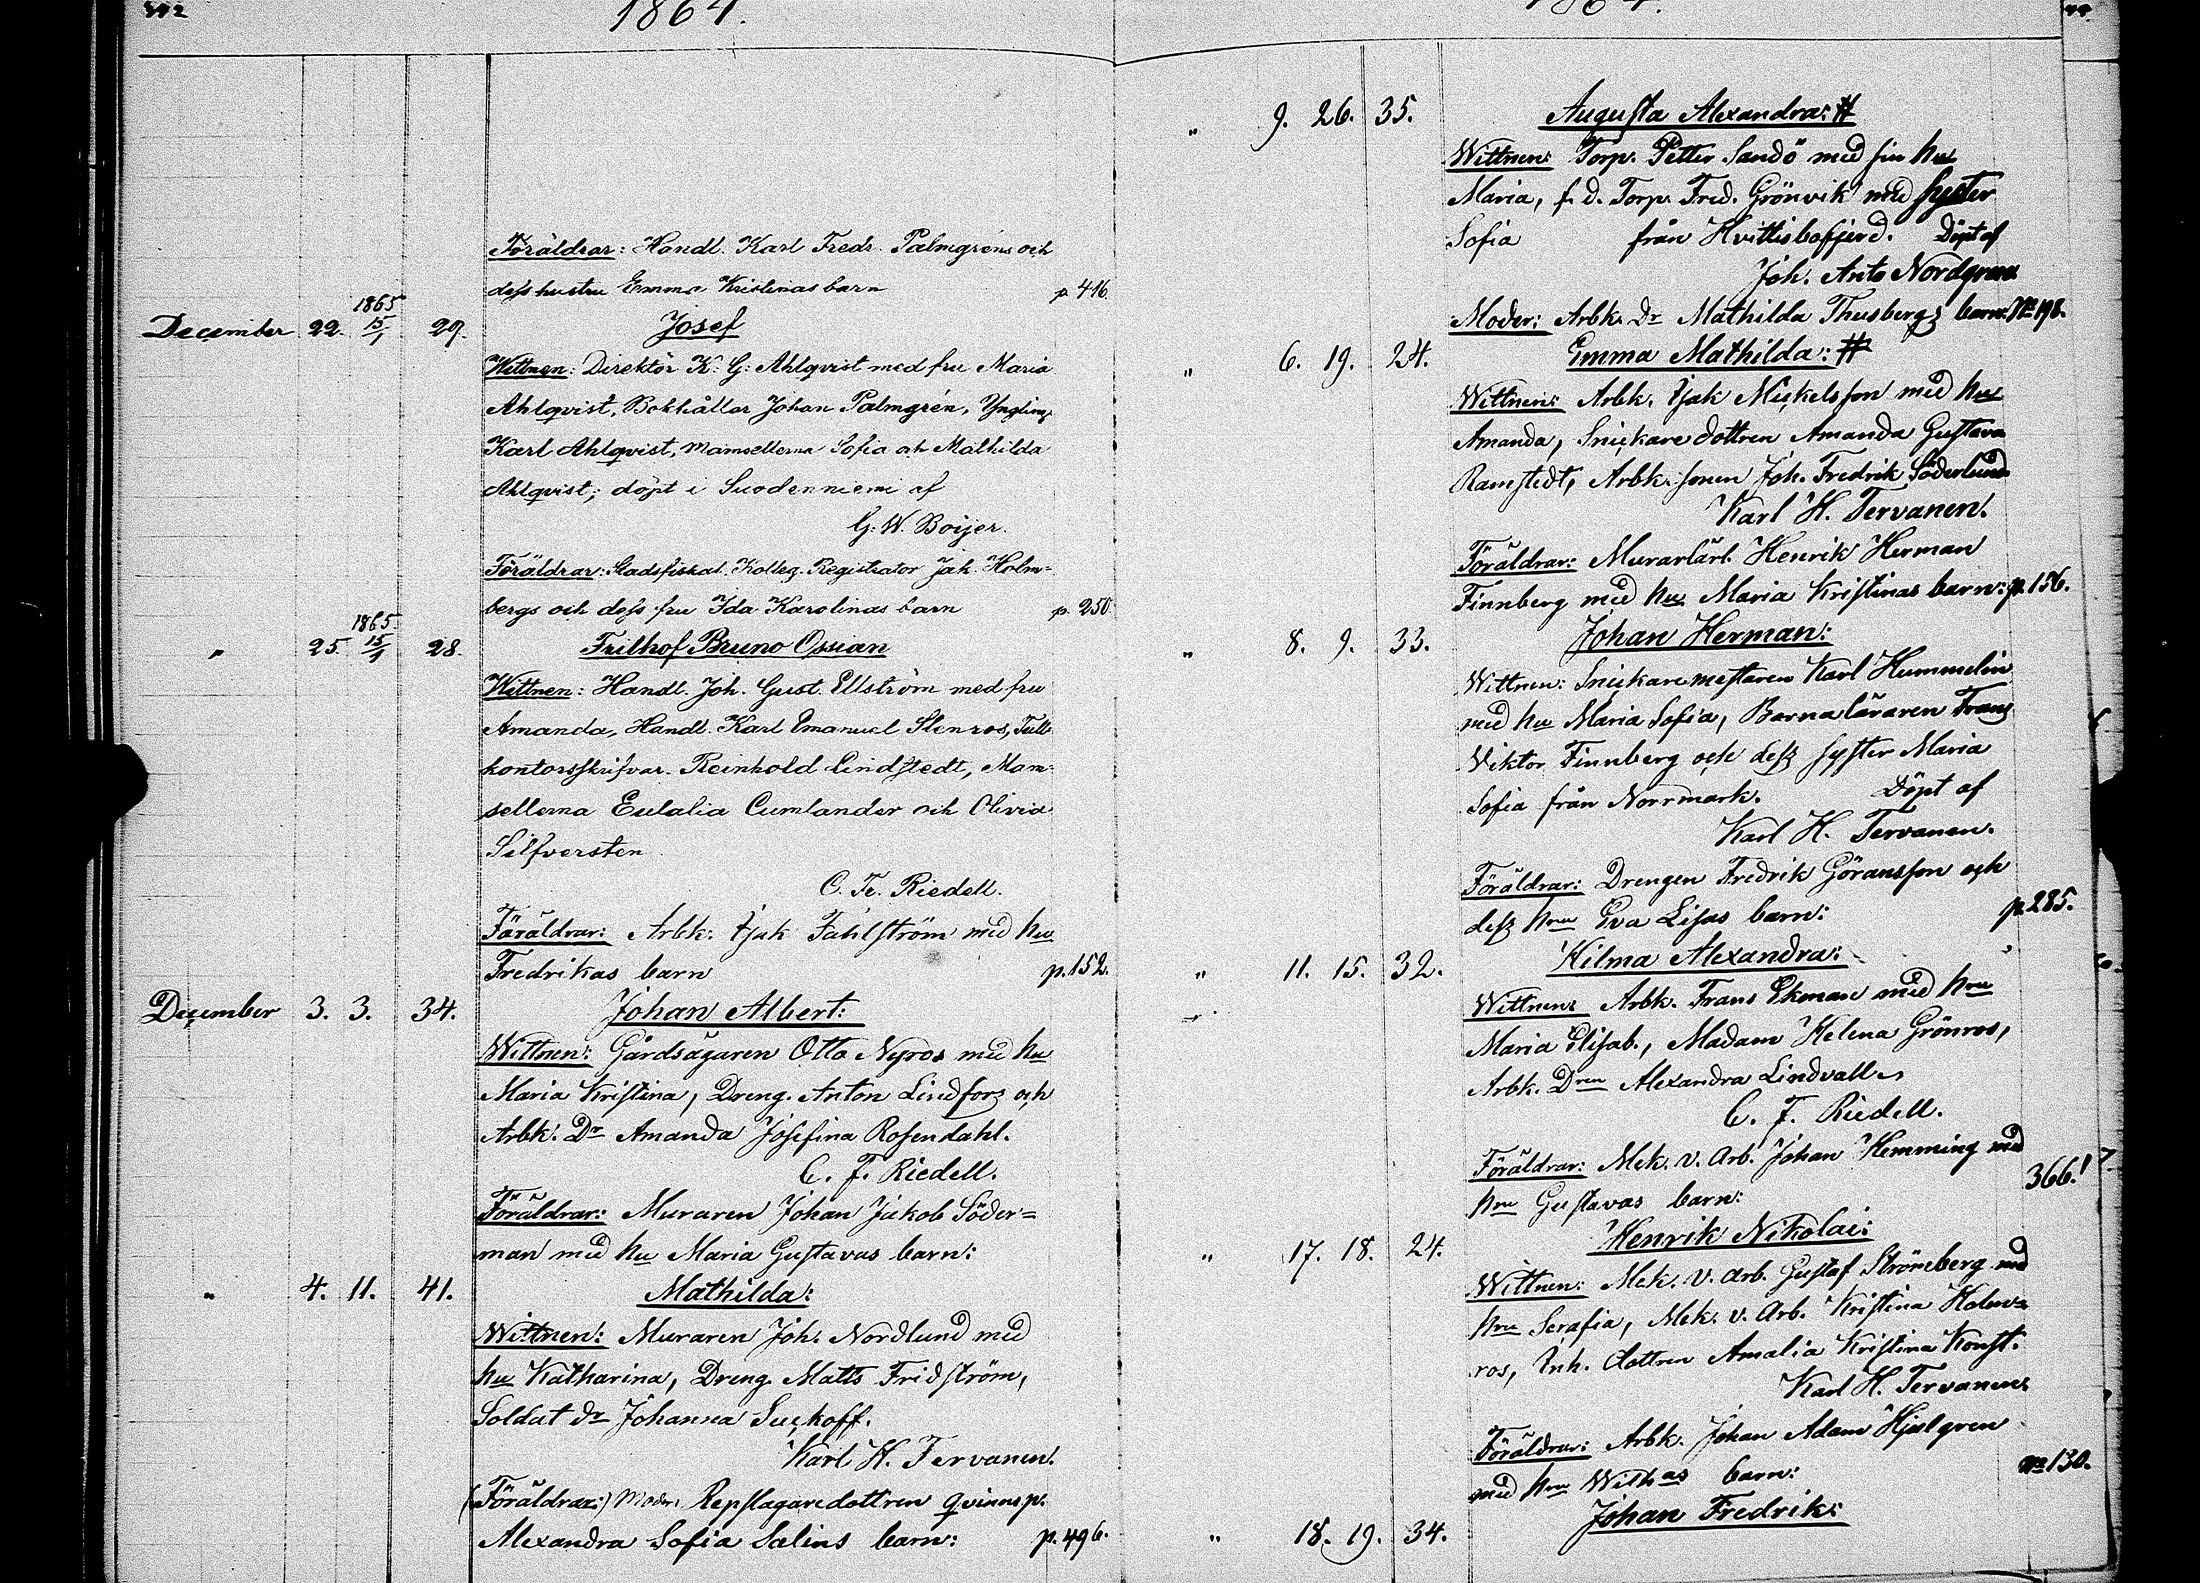 1864.
Föräldrar: Handl. Karl Fredr. Palmgréns och
dess hustru Emma Kristinas barn p. 416.
December 22. 1865 15/1 29. Josef
Wittnen: Direktör K. G. Ahlqvist med fru Maria
Ahlqvist, Bokhållar Johan Palmgrén, Yngling
Karl Ahlqvist, Mamsellerna Sofia och Mathilda
Ahlqvist; döpt i Suodenniemi af
G. W. Boijer.
Föräldrar: Stadsfiskal. Kolleg. Registrator Jak. Holm-
bergs och dess fru Ida Karolinas barn p. 250
" 25 1865 15/1 28. Frithof Bruno Ossian
Wittnen: Handl. Joh. Gust. Ellström med fru
Amanda, Handl. Karl Emanuel Stenros, Tull-
kontorsskrifvar. Reinhold Lindstedt, Mam-
sellerna Eulalia Cumlander och Olivia
Silfversten
C. Fr. Riedell.
Föräldrar: Arbk. Isak Fahlström med hu
Fredrikas barn p. 152.
December 3. 3. 34. Johan Albert:
Wittnen: Gårdsägaren Otto Nyros med hu
Maria Kristina, Dreng. Anton Lindfors och
Arbk. Dr Amanda Josefina Rosendahl.
C. F. Riedell.
Föräldrar: Muraren Johan Jakob Söder=
man med hu Maria Gustavas barn:
" 4. 11. 41. Mathilda:
Wittnen: Muraren Joh. Nordlund med
hu Katharina, Dreng Matts Fridström,
Soldat dr Johanna Suckoff.
Karl H. Tervanen.
(Föräldrar:) Moder: Repslagaredottren qvinnsp.
Alexandra Sofia Salins barn: p. 496.
" 9. 26. 35. Augusta Alexandra: #
Wittnen: Torp. Petter Sandö med sin hu
Maria, f. d. Torp. Fred. Grönvik med syster
Sofia från Hvittisbofjerd. Döpt af
Joh. Anto Nordgren
Moder: Arbk. Dr Mathilda Thusbergs barn: No 198.
" 6. 19. 24. Emma Mathilda: #
Wittnen: Arbk. Isak Mickelsson med hu
Amanda, Snickare dottren Amanda Gustava
Ramstedt, Arbk. sonen Joh. Fredrik Söderlund
Karl H. Tervanen.
Föräldrar: Murarlärl. Henrik Herman
Finnberg med hu Maria Kristinas barn: p. 156.
" 8. 9. 33. Johan Herman:
Wittnen: Snickaremestaren Karl Hummelin
med hu Maria Sofia, Barnaläraren Frans
Viktor Finnberg och dess syster Maria
Sofia från Norrmark. Döpt af
Karl H. Tervanen.
Föräldrar: Drengen Fredrik Göransson och
dess hru Eva Lisas barn: p. 285.
" 11. 15. 32. Hilma Alexandra:
Wittnen: Arbk. Frans Ekman med hru
Maria Elisab., Madam Helena Grönros,
Arbk. Dren Alexandra Lindvall.
C. F. Riedell.
Föräldrar: Mek. v. Arb. Johan Hemming med
hru Gustavas barn: 366!
" 17. 18. 24. Henrik Nikolai:
Wittnen: Mek. v. arb. Gustaf Strömberg med
hru Serafia, Mek. v. Arb. Kristina Holm=
ros, Inh. dottren Amalia Kristina Konst.
Karl H. Tervanen
Föräldrar: Arbk. Johan Adam Hjulgren
med hru Withas barn: No 130.
" 18. 19. 34. Johan Fredrik: